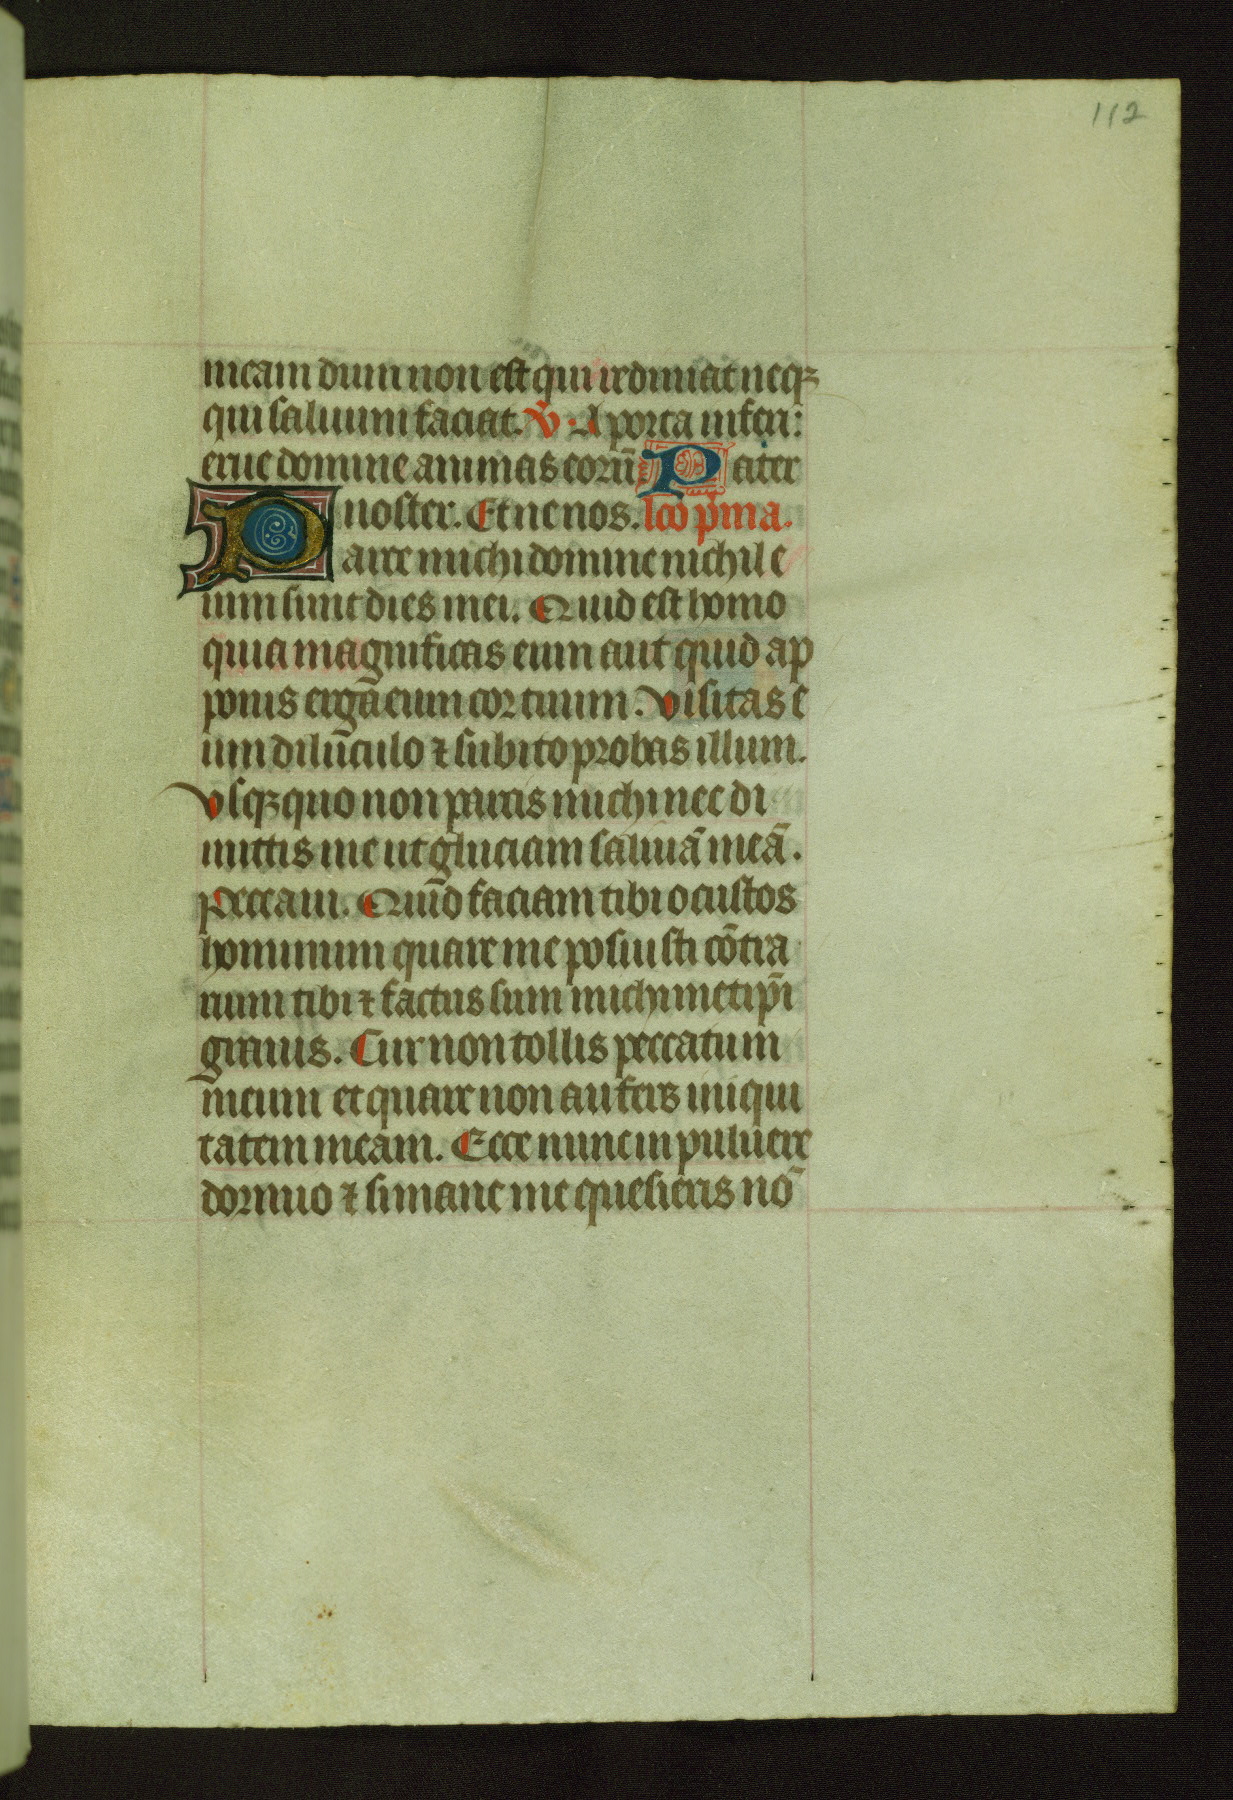 112
meam dum non est qui redimat neqꝫ
qui saluum faciat. V̄. A porta inferi:
erue domine animas eorū Pater
noster. Et ne nos. lc̄o p̄ma.
Parce michi domine nichil e
nim sunt dies mei. Quid est homo
quia magnificas eum aut quid ap
ponis ergā eum cor tuum. Visitas e
um dilūculo ⁊ subito probas illum.
Vsqꝫquo non parcis michi nec di
mittis me ut gluciam saliuā meā.
Peccaui. Quid faciam tibi o custos
hominum quare me posuisti cōtra
rium tibi ⁊ factus sum michimetip̄i
grauis. Cur non tollis peccatum
meum et quare non aufers iniqui
tatem meam. Ecce nunc in puluere
dormio ⁊ si mane me quesieris nō